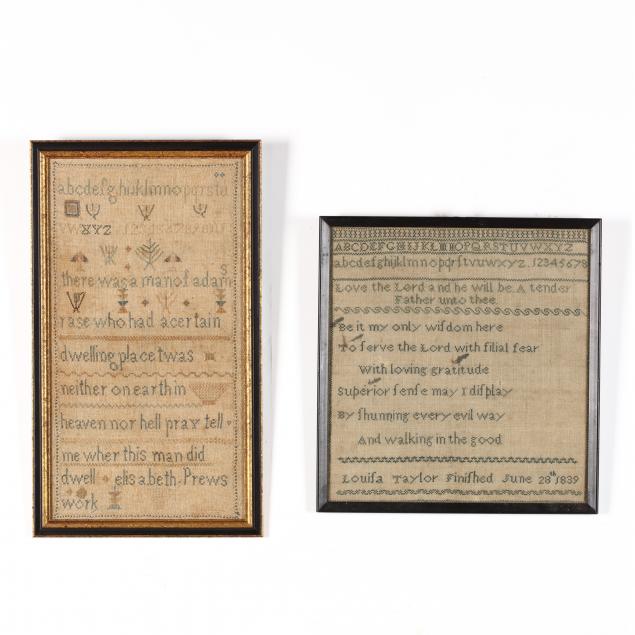 abcdefghijklmnopqrstu
vwxyz
there was a man of adams
rase who had acertain
dwelling place twas
of
neither on earth in
heaven nor hell pray tell
me wher this man did
dwell elisabeth Prews
work
ABCDEFGHIJKLMNOPQRSTUVWXYZ
abcdefghijklmnopqrſtvuwxyz. 12345678
Love the Lord and he will be. A tender
Father unto thee
Be it my only wiſdom here
To ſerve the Lord with filial fear
With loving gratitude
Superior ſenſe may I diſplay
By ſhunning every evil way
And walking in the good
Louiſa Taylor Finiſhed June 28th 1839